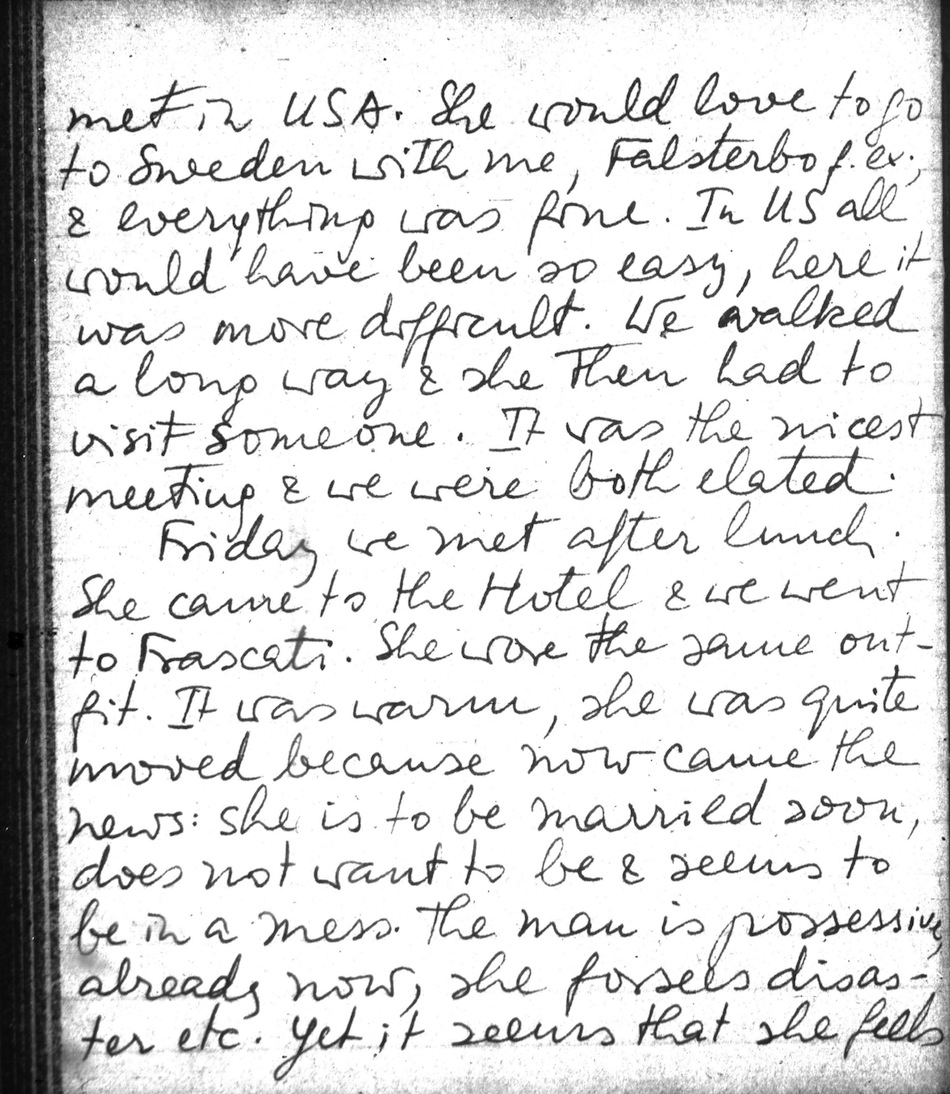 met in USA. She would love to go
to Sweden with me, Falsterbo f. ex.,
& everything was fine. In US all
would have been so easy, here it
was more difficult. We walked
a long way & she then had to
visit someone. It was the nicest
meeting & we were both elated.
Friday we met after lunch.
She came to the Hotel & we went
to Frascati. She wore the same out-
fit. It was warm, she was quite
moved because now came the
news: she is to be married soon,
does not want to be & seems to
be in a mess. The man is possessive,
already now, she forsees disas-
ter etc. Yet it seems that she feels